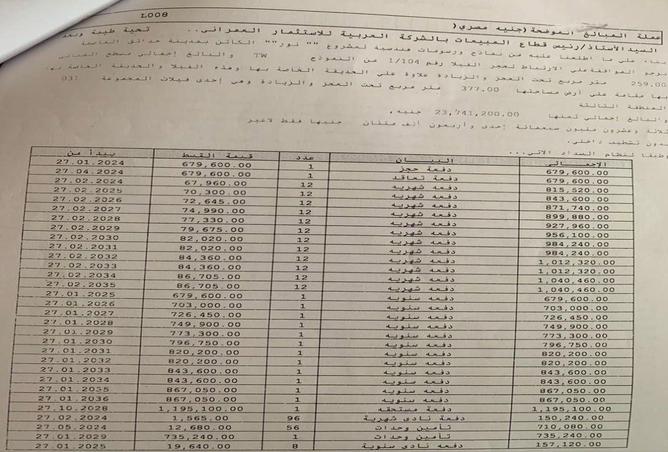 L008
عملة المبالغ الموضحة (جنيه مصري)
السيد الأستاذ/رئيس قطاع المبيعات بالشركة العربية للاستثمار العمرانى.. تحية طيبة وبعد
بناء على ما اطلعنا عليه من نماذج ورسومات هندسية لمشروع "" نور "" الكائن بمدينة حدائق العاصمة
نرجو الموافقة على الارتباط لحجز الفيلا رقم 1/104 من النموذج TW والبالغ إجمالي مسطح المباني
259.00 متر مربع تحت العجز والزيادة علاوة على الحديقة الخاصة بها وهذه الفيلا والحديقة الخاصة بها
بها مقامة على أرض مساحتها 377.00 متر مربع تحت العجز والزيادة وهى إحدى فيلات المجموعة 03!
المنطقة الثالثة
والبالغ إجمالي ثمنها 23,741,200.00 جنيه,
ثلاثة وعشرون مليون سبعمائة إحدى وأربعون ألف مئتان جنيها فقط لاغير
بدون تشطيب داخلى.
طبقا لنظام السداد الآتى...
الإجمالى البيان عدد قيمة القسط يبدأ من
679,600.00 دفعة حجز 1 679,600.00 27.01.2024
679,600.00 دفعة تعاقد 1 679,600.00 27.04.2024
815,520.00 دفعه شهريه 12 67,960.00 27.02.2024
843,600.00 دفعه شهريه 12 70,300.00 27.02.2025
871,740.00 دفعه شهريه 12 72,645.00 27.02.2026
899,880.00 دفعه شهريه 12 74,990.00 27.02.2027
927,960.00 دفعه شهريه 12 77,330.00 27.02.2028
956,100.00 دفعه شهريه 12 79,675.00 27.02.2029
984,240.00 دفعه شهريه 12 82,020.00 27.02.2030
984,240.00 دفعه شهريه 12 82,020.00 27.02.2031
1,012,320.00 دفعه شهريه 12 84,360.00 27.02.2032
1,012,320.00 دفعه شهريه 12 84,360.00 27.02.2033
1,040,460.00 دفعه شهريه 12 86,705.00 27.02.2034
1,040,460.00 دفعه شهريه 12 86,705.00 27.02.2035
679,600.00 دفعه سنويه 1 679,600.00 27.01.2025
703,000.00 دفعه سنويه 1 703,000.00 27.01.2026
726,450.00 دفعه سنويه 1 726,450.00 27.01.2027
749,900.00 دفعه سنويه 1 749,900.00 27.01.2028
773,300.00 دفعه سنويه 1 773,300.00 27.01.2029
796,750.00 دفعه سنويه 1 796,750.00 27.01.2030
820,200.00 دفعه سنويه 1 820,200.00 27.01.2031
820,200.00 دفعه سنويه 1 820,200.00 27.01.2032
843,600.00 دفعه سنويه 1 843,600.00 27.01.2033
843,600.00 دفعه سنويه 1 843,600.00 27.01.2034
867,050.00 دفعه سنويه 1 867,050.00 27.01.2035
867,050.00 دفعه سنويه 1 867,050.00 27.01.2036
1,195,100.00 دفعة مستحقه 1 1,195,100.00 27.10.2028
150,240.00 دفعة نادى شهرية 96 1,565.00 27.02.2024
710,080.00 تأمين وحدات 56 12,680.00 27.05.2024
735,240.00 تأمين وحدات 1 735,240.00 27.01.2029
157,120.00 دفعة نادى سنوية 8 19,640.00 27.01.2025